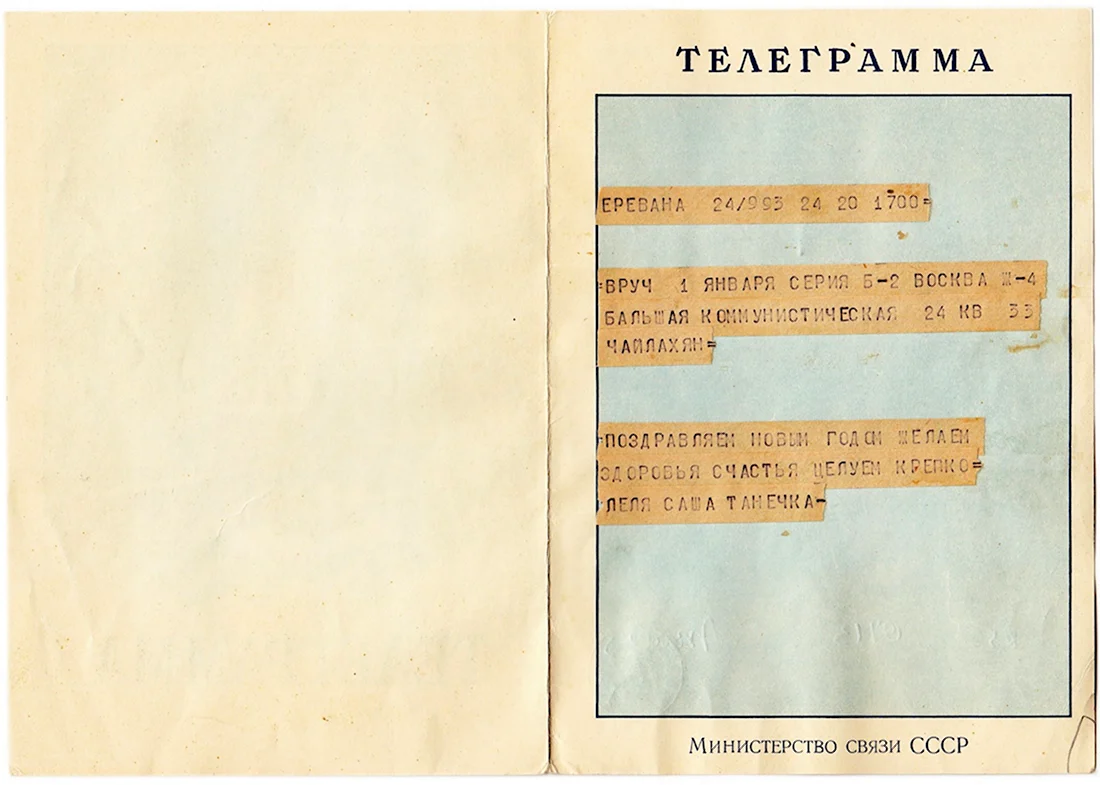 ТЕЛЕГРАММА
ЕРЕВАНА 24/993 24 20 1700=
=ВРУЧ 1 ЯНВАРЯ СЕРИЯ Б-2 ВОСКВА Ж-4
БАЛЬШАЯ КОММУНИСТИЧЕСКАЯ 24 КВ 33
ЧАЙЛАХЯН=
=ПОЗДРАВЛЯЕМ НОВЫМ ГОДОМ ЖЕЛАЕМ
ЗДОРОВЬЯ СЧАСТЬЯ ЦЕЛУЕМ КРЕПКО=
ЛЕЛЯ САША ТАНЕЧКА-
Министерство связи СССР